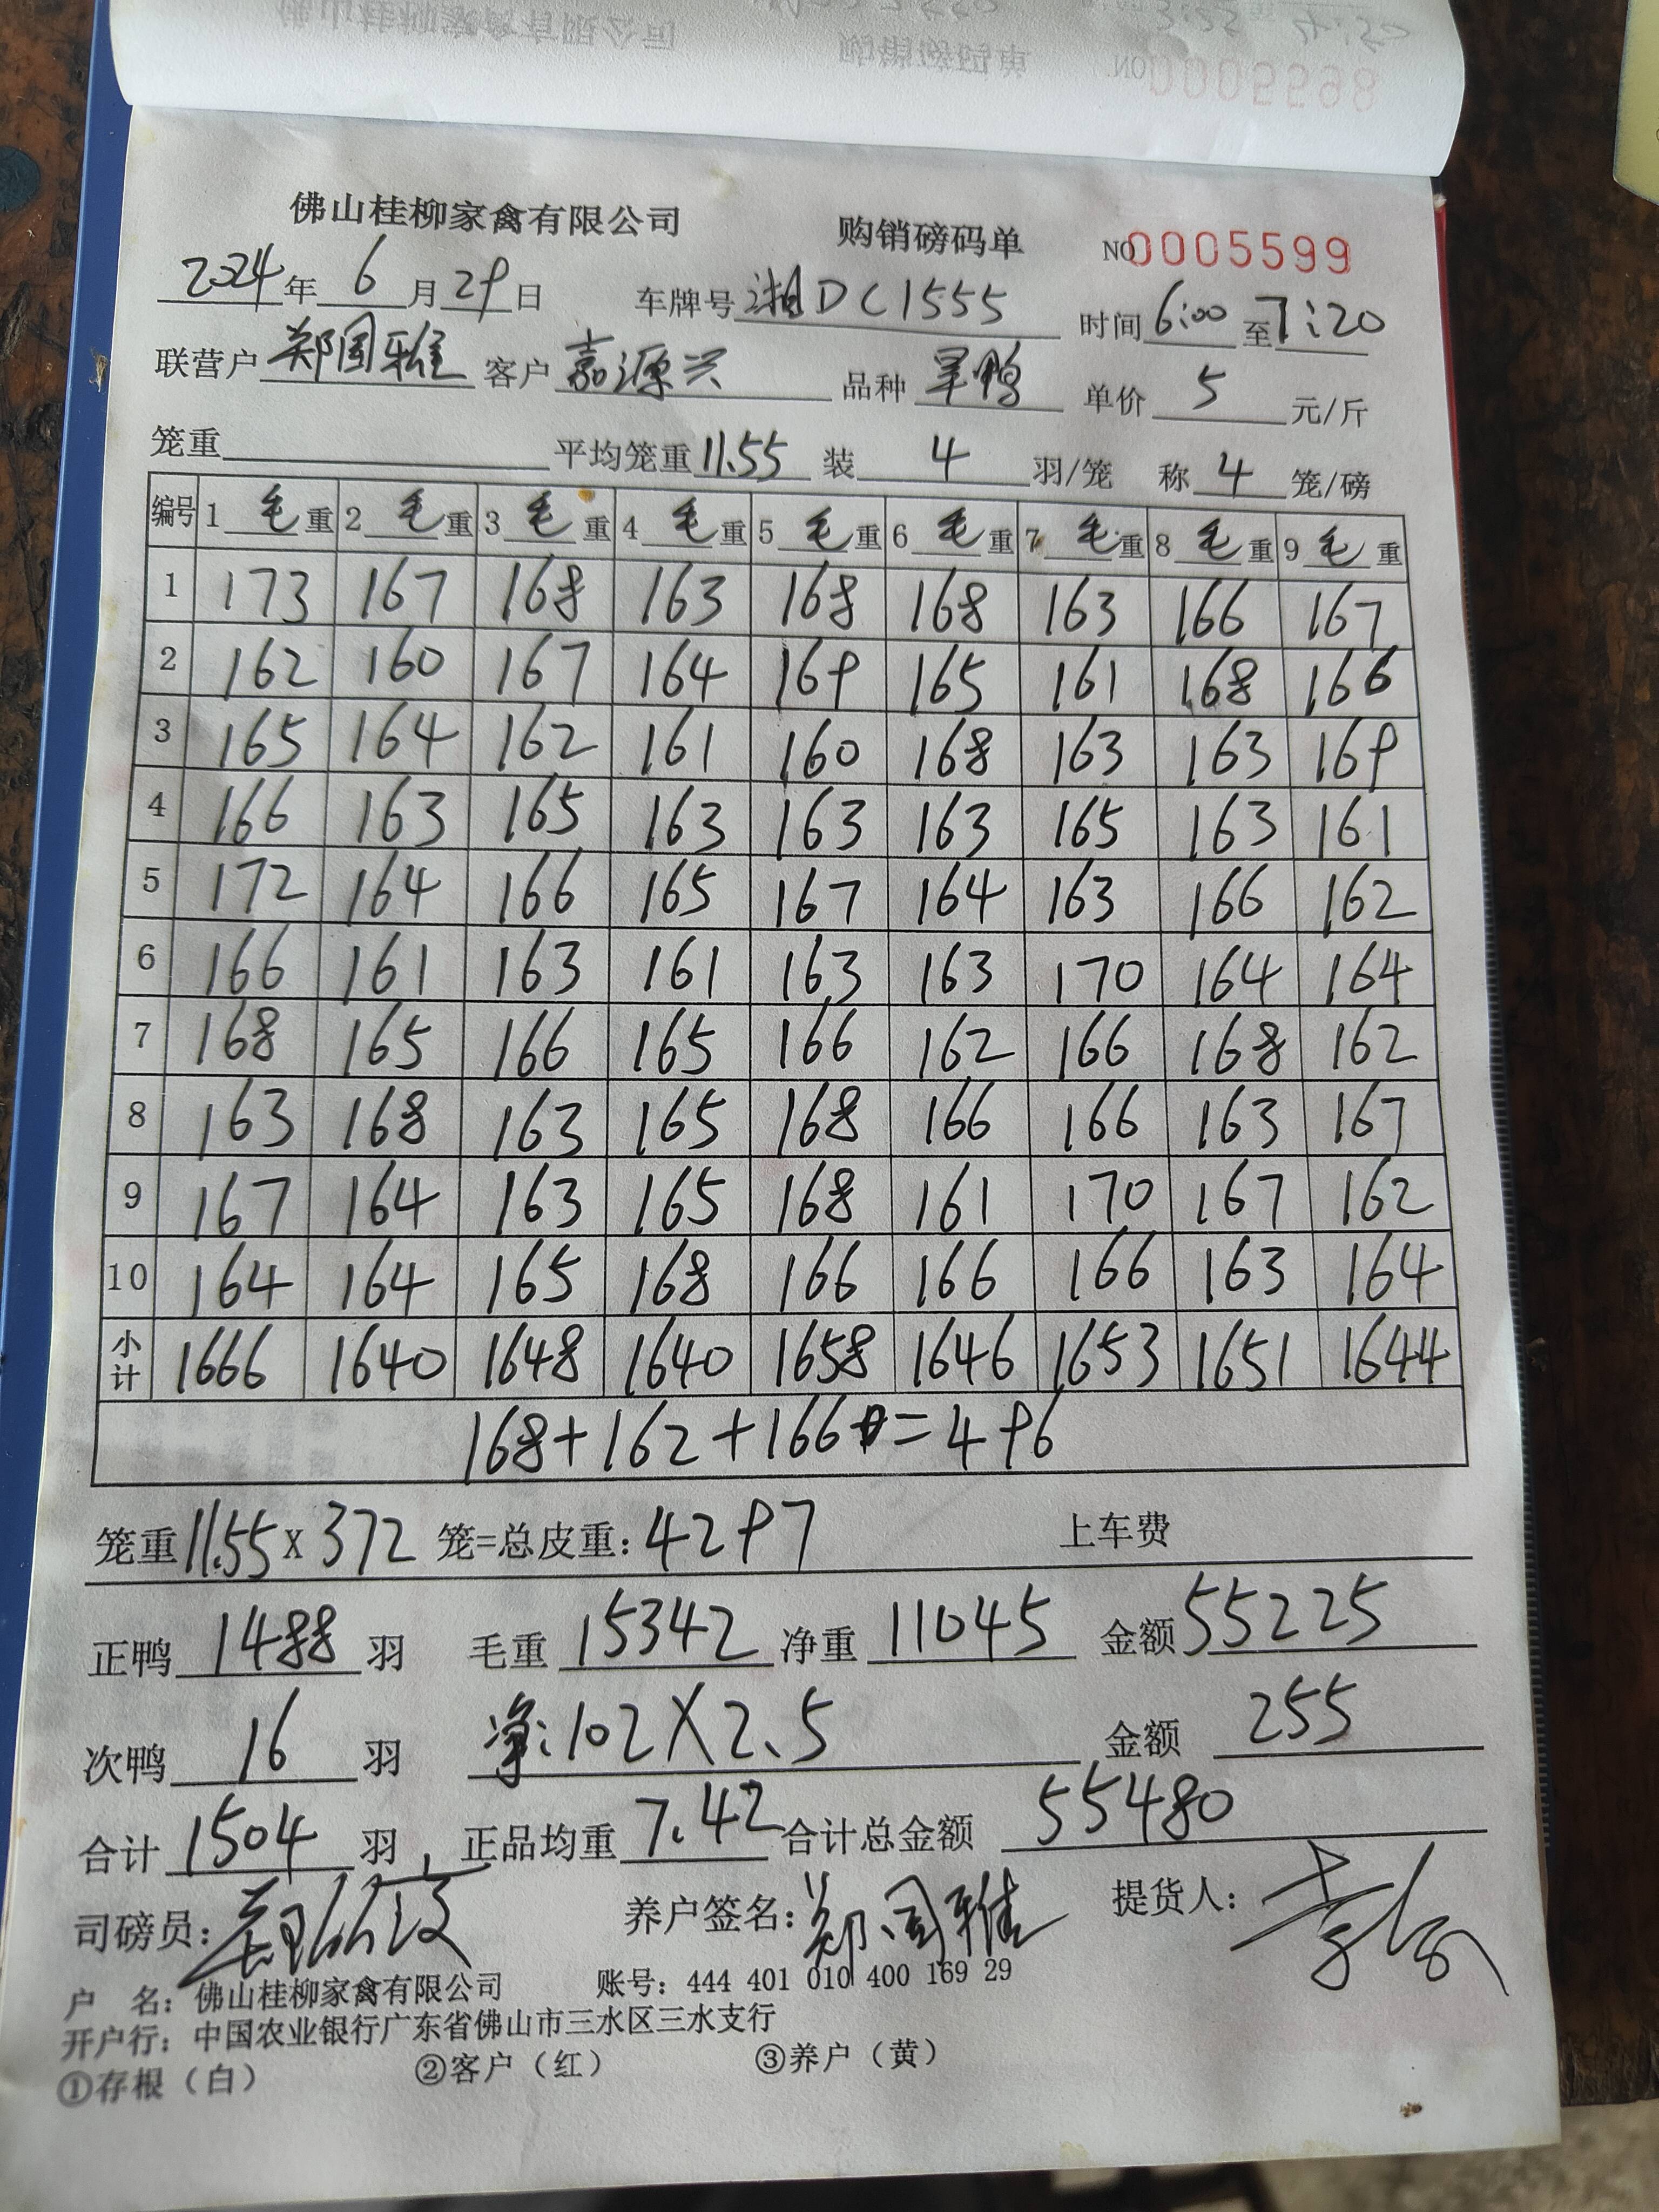 佛山桂柳家禽有限公司 购销磅码单 NO 0005599
2024年 6 月 29 日 车牌号 湘DC1555 时间 6:00 至 7:20
联营户 郑国雅 客户 嘉源兴 品种 旱鸭 单价 5 元/斤
笼重 平均笼重 11.55 装 4 羽/笼 称 4 笼/磅
编号 1 毛 重 2 毛 重 3 毛 重 4 毛 重 5 毛 重 6 毛 重 7 毛 重 8 毛 重 9 毛 重
1 173 167 168 163 168 168 163 166 167
2 162 160 167 164 169 165 161 168 166
3 165 164 162 161 160 168 163 163 169
4 166 163 165 163 163 163 165 163 161
5 172 164 166 165 167 164 163 166 162
6 166 161 163 161 163 163 170 164 164
7 168 165 166 165 166 162 166 168 162
8 163 168 163 165 168 166 166 163 167
9 167 164 163 165 168 161 170 167 162
10 164 164 165 168 166 166 166 163 164
小计 1666 1640 1648 1640 1658 1646 1653 1651 1644
168+162+166=496
笼重 11.55 x 372 笼=总皮重: 4297 上车费
正鸭 1488 羽 毛重 15342 净重 11045 金额 55225
次鸭 16 羽 净:102X2.5 金额 255
合计 1504 羽 正品均重 7.42 合计总金额 55480
司磅员: 养户签名: 郑国雅 提货人:
户 名: 佛山桂柳家禽有限公司 账号: 444 401 010 400 169 29
开户行: 中国农业银行广东省佛山市三水区三水支行
①存根(白) ②客户(红) ③养户(黄)